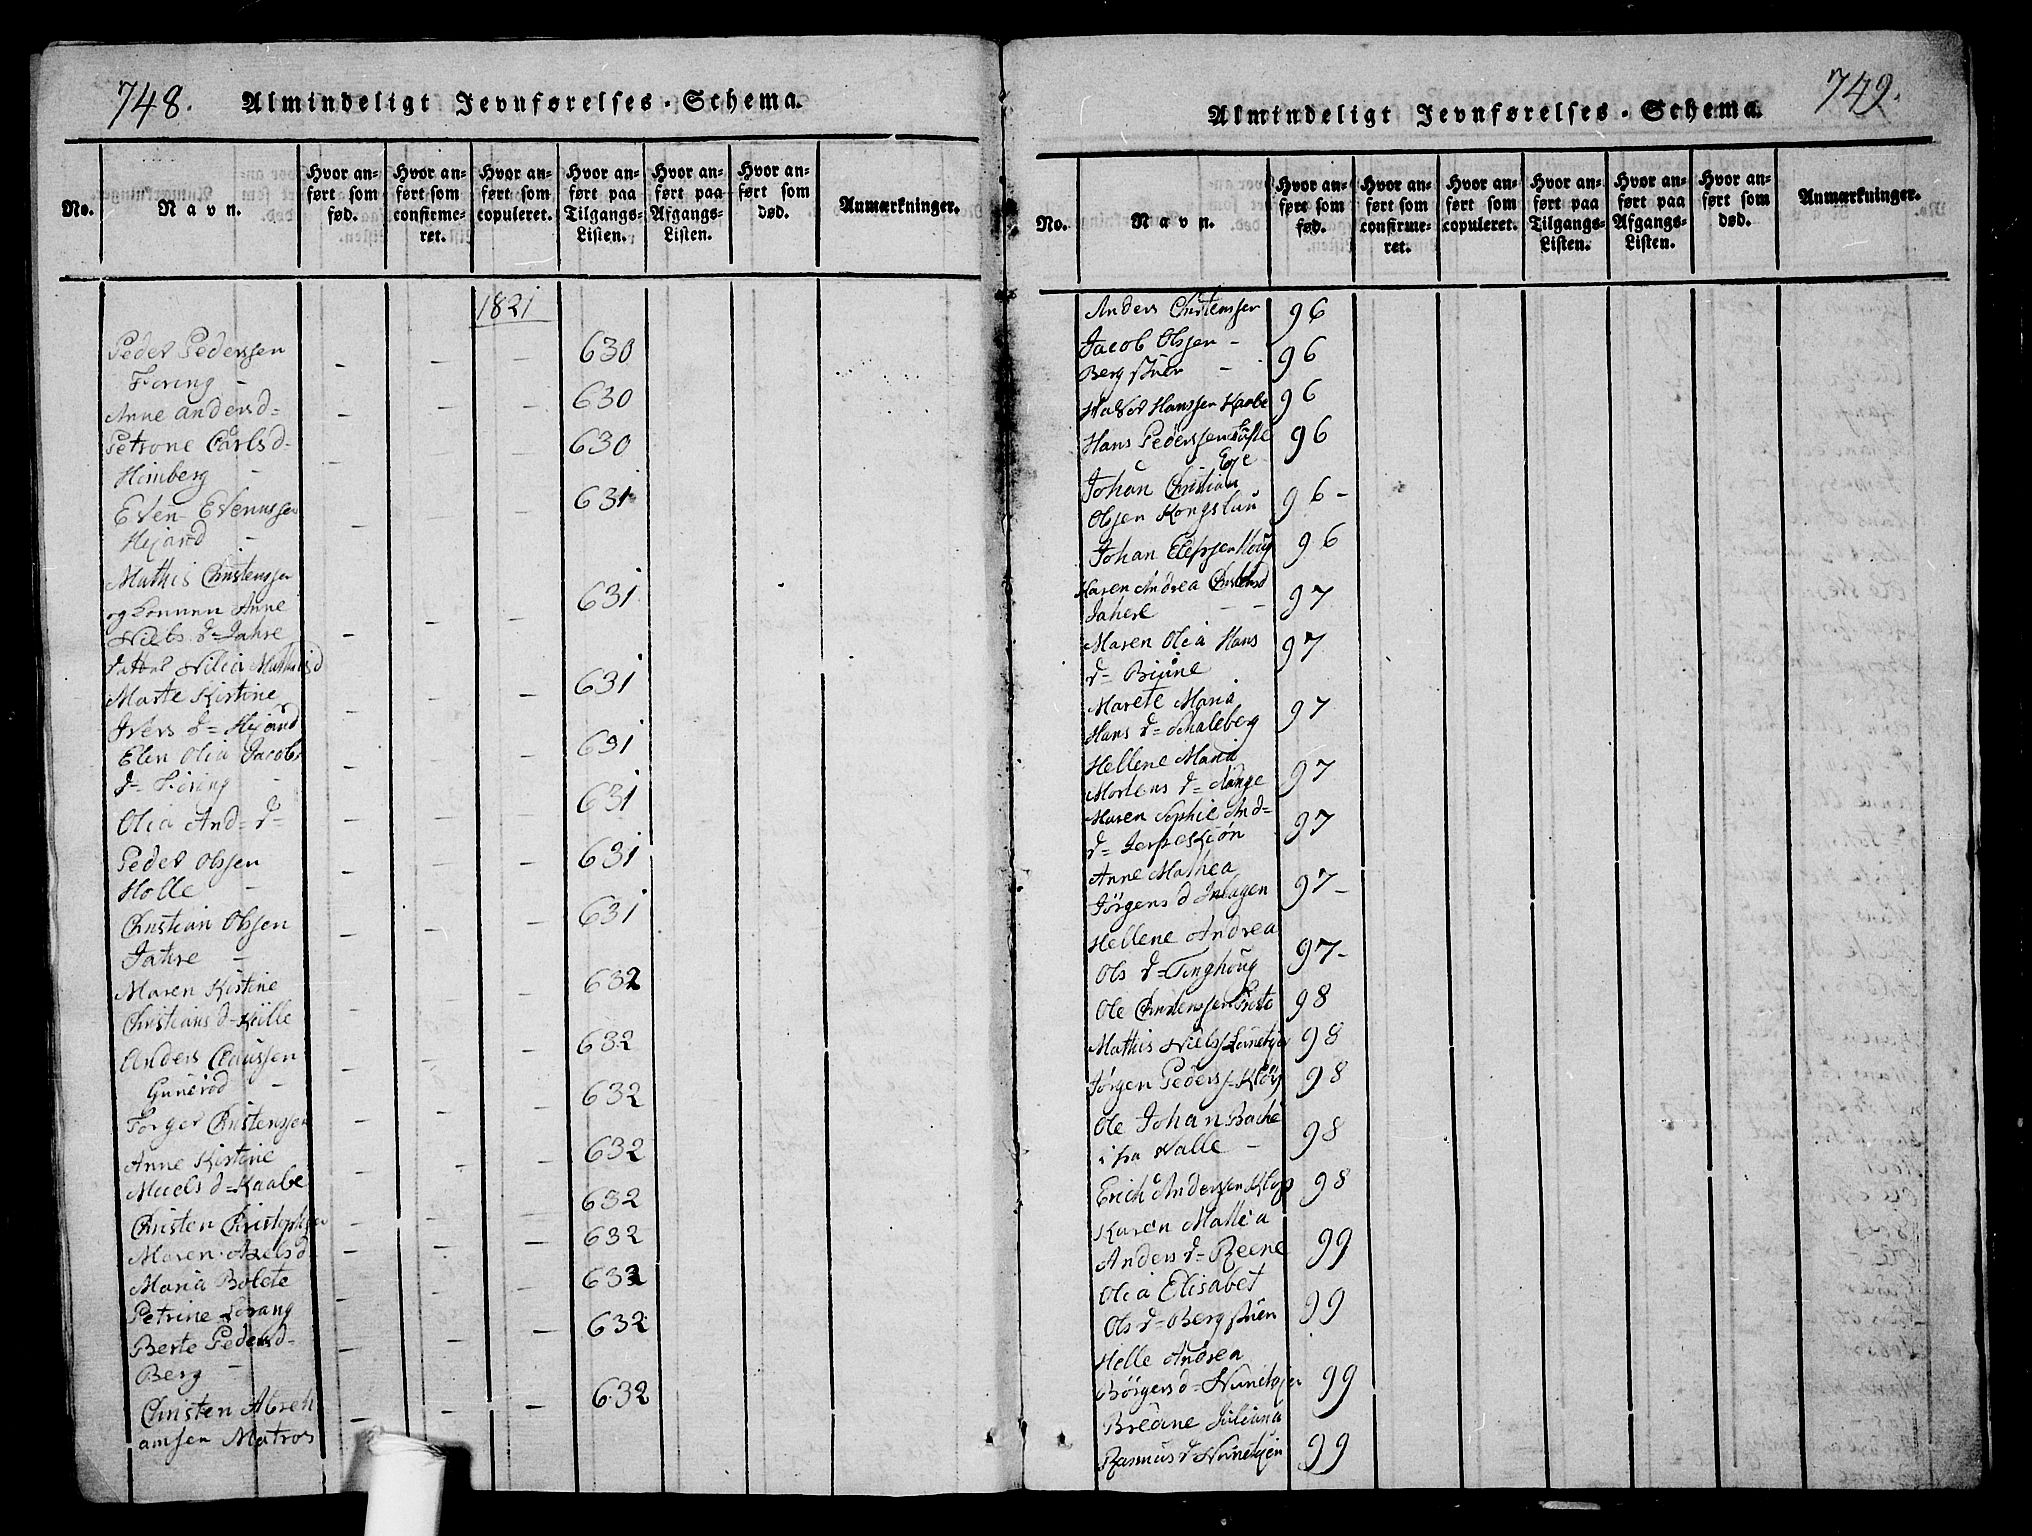 748.
Almindeligt Jevnførelses-Schema.
No.
Navn.
Hvor anført som fød.
Hvor anført som confirmeret.
Hvor anført som copuleret.
Hvor anført paa Tilgangs-Listen.
Hvor anført paa Afgangs-Listen.
Hvor anført som død.
Anmærkninger.
1821
Peder Pederssen
Foring - 630
Anne Andersd= 630
Petrone Carlsd-
Himberg - 630
Even Evenssen
Hejand - 631
Mathis Christenssen
og Konnen Anne
Niels d= Jahre 631
Mathisd
Marte Kirstine
Ivers d= Hejand 631
Elen Olia Jacobs
d= Foring - 631
Olia And= d= 631
Peder Olssen
Holle - 631
Christian Olssen
Jahre - 631
Maren Kirstine
Christians d= Kille 632
Anders Claussen
Gunerød - 632
Torger Christenssen 632
Anne Kirstine
d= Kaabe 632
Christen Christophsen 632
Maren Axelsd 632
Maria Bolete
Petrine 632
Berte Pedersd-
Berg - 632
Christen Abreh
amsen Matros 632
Almindeligt Jevnførelses-Schema.
749.
No.
Navn.
Hvor anført som fød.
Hvor anført som confirmeret.
Hvor anført som copuleret.
Hvor anført paa Tilgangs-Listen.
Hvor anført paa Afgangs-Listen.
Hvor anført som død.
Anmærkninger.
Anders Christenssen 96
Jacob Olssen -
Berg - 96
Hanssen Kaabe 96
Hans Pederssen
Eje 96
Johan Christian
Olssen Kongslun 96-
Johan 96
Karen Andrea Christensd
Jahre - - 97
Maren Olea Hans
d= 97
Marete Maria
Hans d= Schaleberg 97
Hellene Maria
Mortens d= 97
Maren Sophie And=
d= 97
Anne Mathea
Jörgens d 97-
Hellene Andrea
Ols d= Tinghoug 97-
Ole Christenssen 98
Mathis Niels 98
Jörgen Peders 98
Ole Johan Bache
fra Valle - 98
Erich Anderssen Klop 98
Karen Mathea
Anders d= Reene 99
Olia Elisabet
Ols d= Berg 99
Helle Andrea
Börgers d= 99
Juliana
Rasmus d= 99